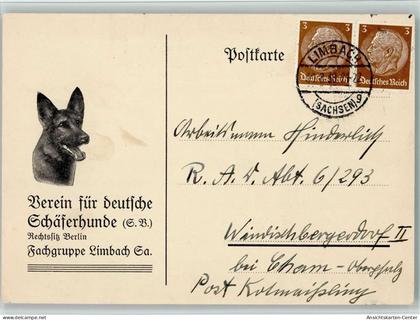 Postkarte
3 3
Deutsches Reich Deutsches Reich
LIMBACH
(SACHSEN)
Arbeitsmann Hinderlich
R. A. D. Abt. 6/293
Windischbergerdorf II
bei Cham - Oberpfalz
Post Kolmaißling
Verein für deutsche
Schäferhunde (S. V.)
Rechtssitz Berlin
Fachgruppe Limbach Sa.
Ansichtskarten-Center